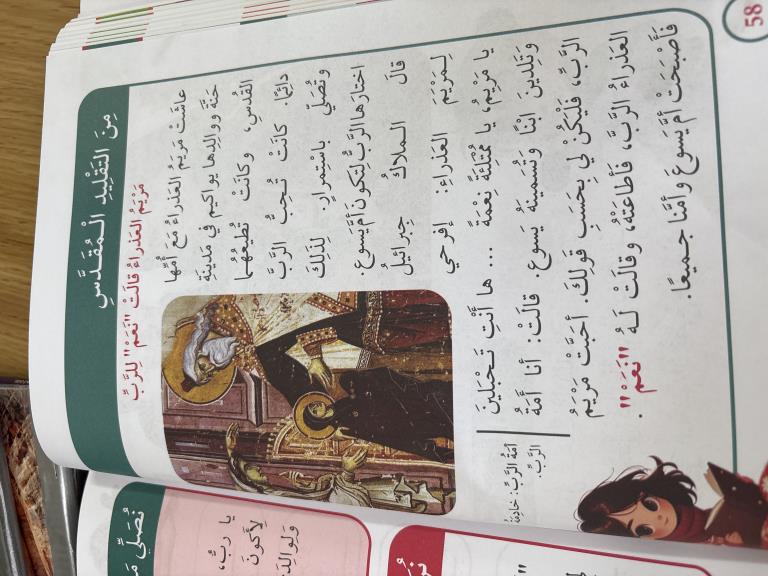 مِنَ التَقْلِيدِ الْـمُقَدَّسِ
مَرْيَمُ العَذراءُ قالَتْ "نَعَمْ" لِلرَّبِّ
عاشَتْ مَرْيَمُ العَذراءُ مَعَ أُمِّها
حَنَّةَ وَوالِدِها يواكيم في مَدينَةِ
القُدْسِ، وكانَتْ تُطيعُهُما
دائِمًا. كانَتْ تُحِبُّ الرَّبَّ
وتُصَلّي باسْتِمرارٍ. لِذَلِكَ
اختارَها الرَّبُّ لِتَكونَ أُمَّ يَسوعَ.
قالَ الـمَلاكُ جِبرائيلُ
لِـمَرْيَمَ العَذراءِ: إفرَحي
يا مَرْيَمُ، يا مُمْتَلِئَةً نِعْمَةً ... ها أَنْتِ تَحْبَلينَ
وَتَلِدينَ ابْنًا وَتُسَمينَهُ يَسوعَ. قالَتْ: أَنا أَمَةُ
الرَّبِّ، فَلْيَكُنْ لي بِحَسَبِ قَولِكَ. أَحَبَّتْ مَرْيَمُ
العَذراءُ الرَّبَّ، فَأَطاعَتْهُ، وقالَتْ لَهُ "نَعَمْ".
فَأَصْبَحَتْ أُمَّ يَسوعَ وَأُمَّنا جَميعًا.
أَمَةُ الرَّبِّ: خادِمَةُ
الرَّبِّ.
58
نُصَلّي
يا ربُّ،
لِأَكونَ